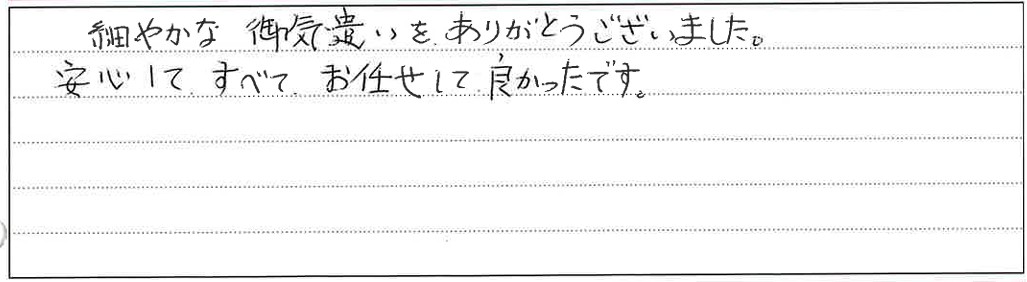 細やかな 御気遣いを ありがとうございました。
安心して すべて お任せして 良かったです。